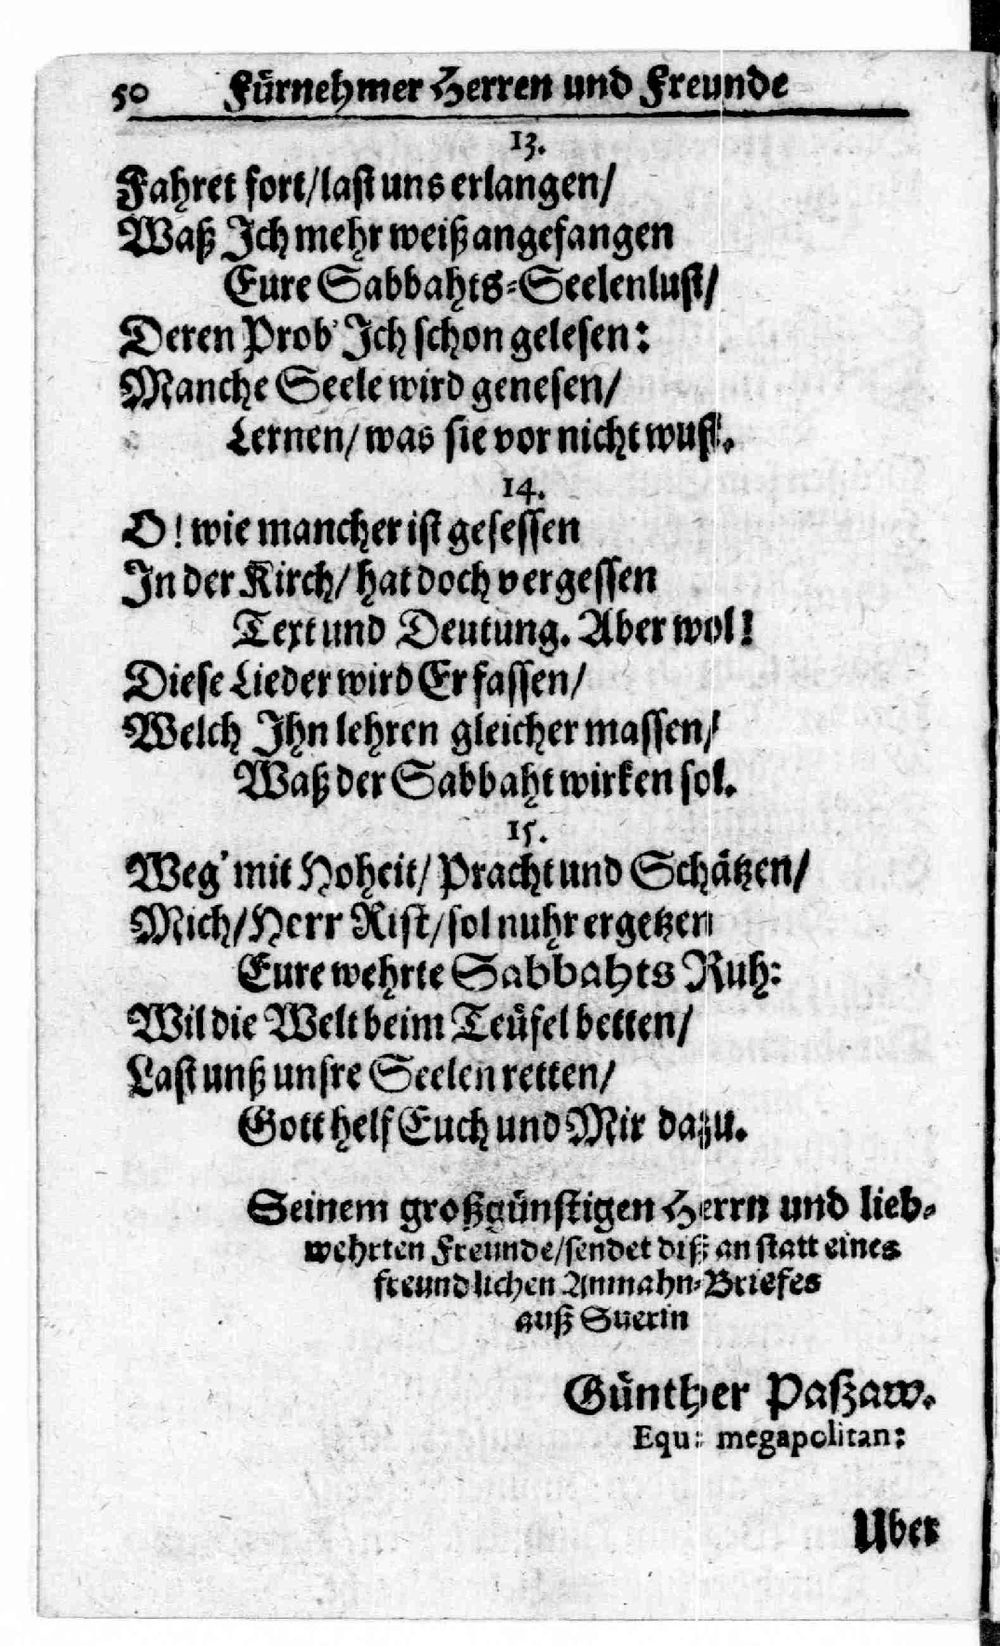 50 Fürnehmer Herren und Freunde
13.
Fahret fort/last uns erlangen/
Waß Ich mehr weiß angefangen
Eure Sabbahts-Seelenlust/
Deren Prob' Ich schon gelesen:
Manche Seele wird genesen/
Lernen/ was sie vor nicht wust.
14.
O! wie mancher ist gesessen
In der Kirch/ hat doch vergessen
Text und Deutung. Aber wol!
Diese Lieder wird Er fassen/
Welch Ihn lehren gleicher massen/
Waß der Sabbaht wirken sol.
15.
Weg' mit Hoheit/ Pracht und Schätzen/
Mich/ Herr Rist/ sol nuhr ergetzen
Eure wehrte Sabbahts Ruh:
Wil die Welt beim Teüfel betten/
Last unß unsre Seelen retten/
Gott helf Euch und Mir dazu.
Seinem großgünstigen Herrn und lieb-
wehrten Freunde/sendet diß an statt eines
freundlichen Anmahn-Briefes
auß Suerin
Günther Paßzaw.
Equ: megapolitan:
Uber